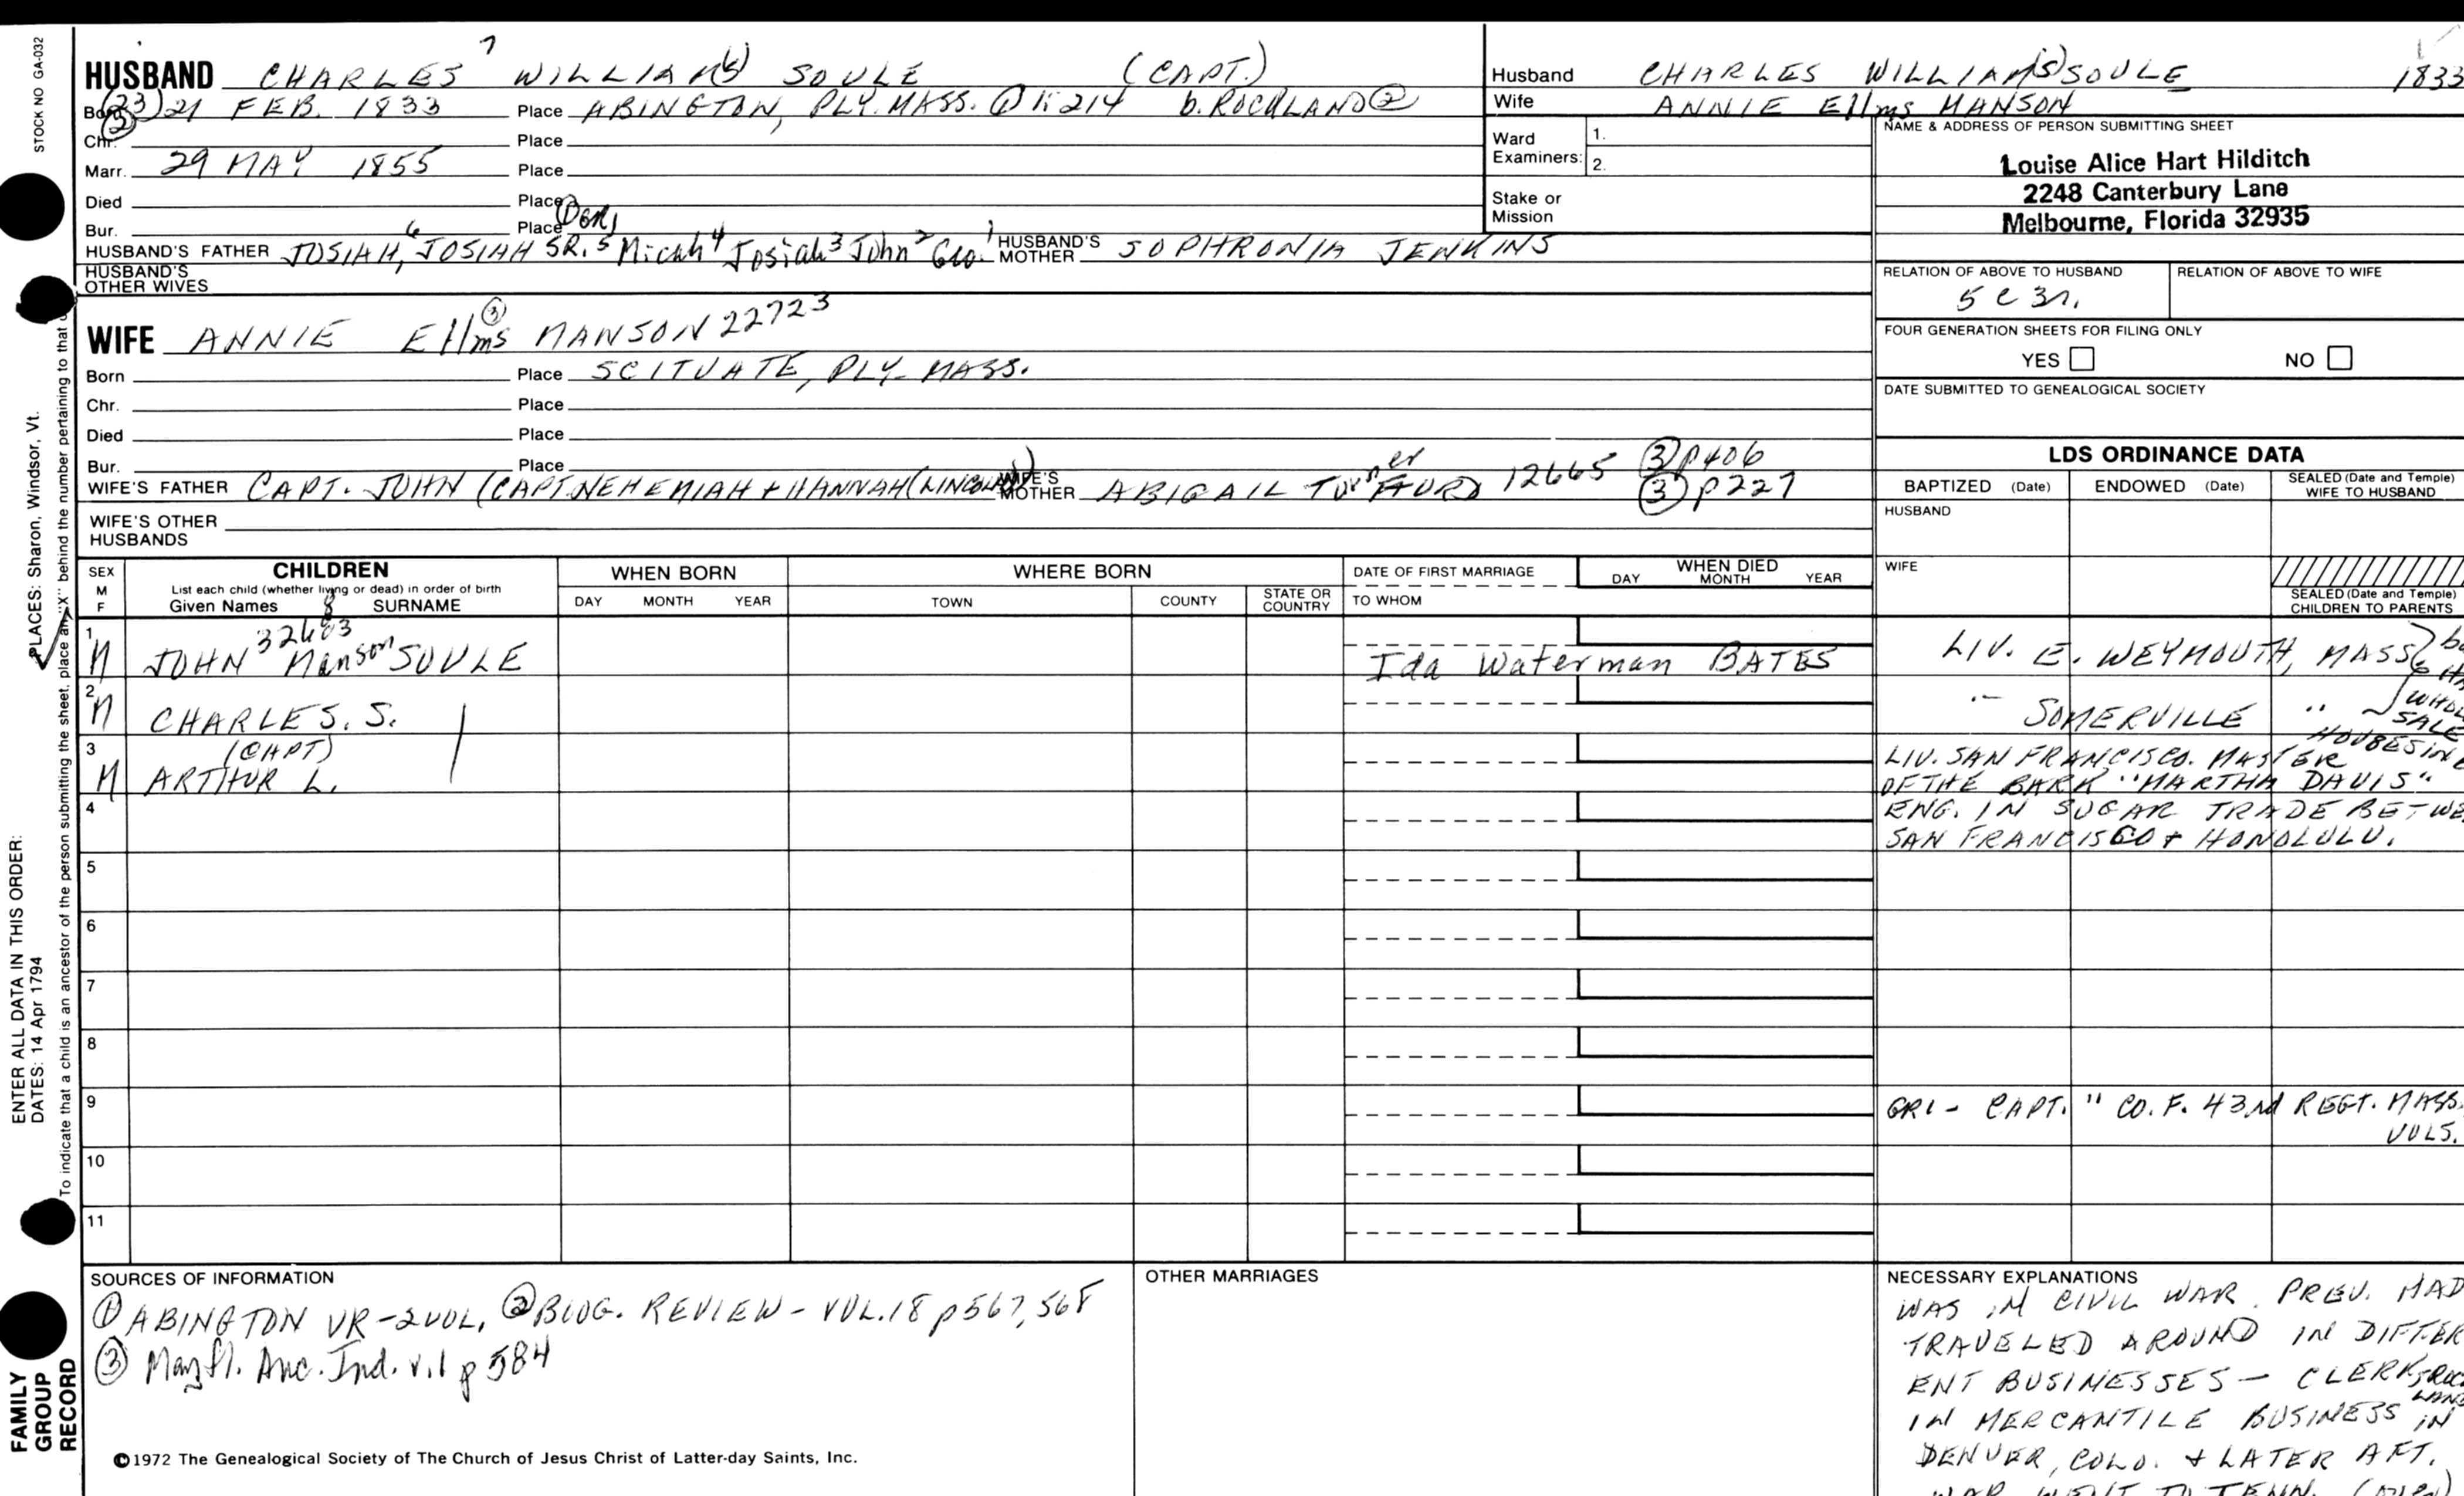 STOCK NO GA-032
HUSBAND CHARLES 7 WILLIAM(S) SOULE (CAPT.)
Born (23) 21 FEB. 1833 Place ABINGTON, PLY. MASS. ① 1:214 b. ROCKLAND ②
②
Chr. Place
Marr. 29 MAY 1855 Place
Died Place
Bur. Place
HUSBAND'S FATHER JOSIAH, 6 JOSIAH SR. 5 Micah 4 Josiah 3 John 2 Geo. 1 HUSBAND'S MOTHER SOPHRONIA JENKINS
HUSBAND'S OTHER WIVES
WIFE ANNIE Ellms ③ MANSON 22723
Born Place SCITUATE, PLY. MASS.
Chr. Place
Died Place
Bur. Place
WIFE'S FATHER CAPT. JOHN (CAPT NEHEMIAH + HANNAH (LINCOLN)) WIFE'S MOTHER ABIGAIL Turner 12665 ③ p406
③ p227
WIFE'S OTHER HUSBANDS
Husband CHARLES WILLIAM(S) SOULE 1833
Wife ANNIE Ellms MANSON
Ward Examiners: 1.
2.
Stake or Mission
NAME & ADDRESS OF PERSON SUBMITTING SHEET
Louise Alice Hart Hilditch
2248 Canterbury Lane
Melbourne, Florida 32935
RELATION OF ABOVE TO HUSBAND RELATION OF ABOVE TO WIFE
5 c 3r.
FOUR GENERATION SHEETS FOR FILING ONLY
YES NO
DATE SUBMITTED TO GENEALOGICAL SOCIETY
LDS ORDINANCE DATA
BAPTIZED (Date) ENDOWED (Date) SEALED (Date and Temple) WIFE TO HUSBAND
HUSBAND
WIFE
SEALED (Date and Temple) CHILDREN TO PARENTS
SEX M F CHILDREN WHEN BORN WHERE BORN DATE OF FIRST MARRIAGE WHEN DIED
List each child (whether living or dead) in order of birth
Given Names 8 SURNAME DAY MONTH YEAR TOWN COUNTY STATE OR COUNTRY TO WHOM DAY MONTH YEAR
1 M JOHN Manson SOULE 32683 Ida Waterman BATES LIV. E. WEYMOUTH, MASS
2 M CHARLES. S. " SOMERVILLE " WHOLE SALE HOUSES IN
3 M (CAPT) ARTHUR L. LIV. SAN FRANCISCO. MASTER
OF THE BARK "MARTHA DAVIS"
4 ENG. IN SUGAR TRADE BETWE
SAN FRANCISCO + HONOLULU.
5
6
7
8
9 GRI- CAPT. " CO. F. 43rd REGT. MASS.
VOLS.
10
11
SOURCES OF INFORMATION
① ABINGTON VR-2VOL, ② BIOG. REVIEW - VOL. 18 p567, 568
③ Mayfl. Anc. Ind. v.1 p 584
OTHER MARRIAGES
NECESSARY EXPLANATIONS
WAS IN CIVIL WAR. PREV. HAD
TRAVELED AROUND IN DIFFER
ENT BUSINESSES - CLERK, ROCK
LAND
IN MERCANTILE BUSINESS IN
DENVER, COLO. + LATER AFT.
WAR WENT TO TENN. (over)
©1972 The Genealogical Society of The Church of Jesus Christ of Latter-day Saints, Inc.
PLACES: Sharon, Windsor, Vt.
ENTER ALL DATA IN THIS ORDER:
DATES: 14 Apr 1794
To indicate that a child is an ancestor of the person submitting the sheet, place an "X" behind the number pertaining to that
FAMILY
GROUP
RECORD